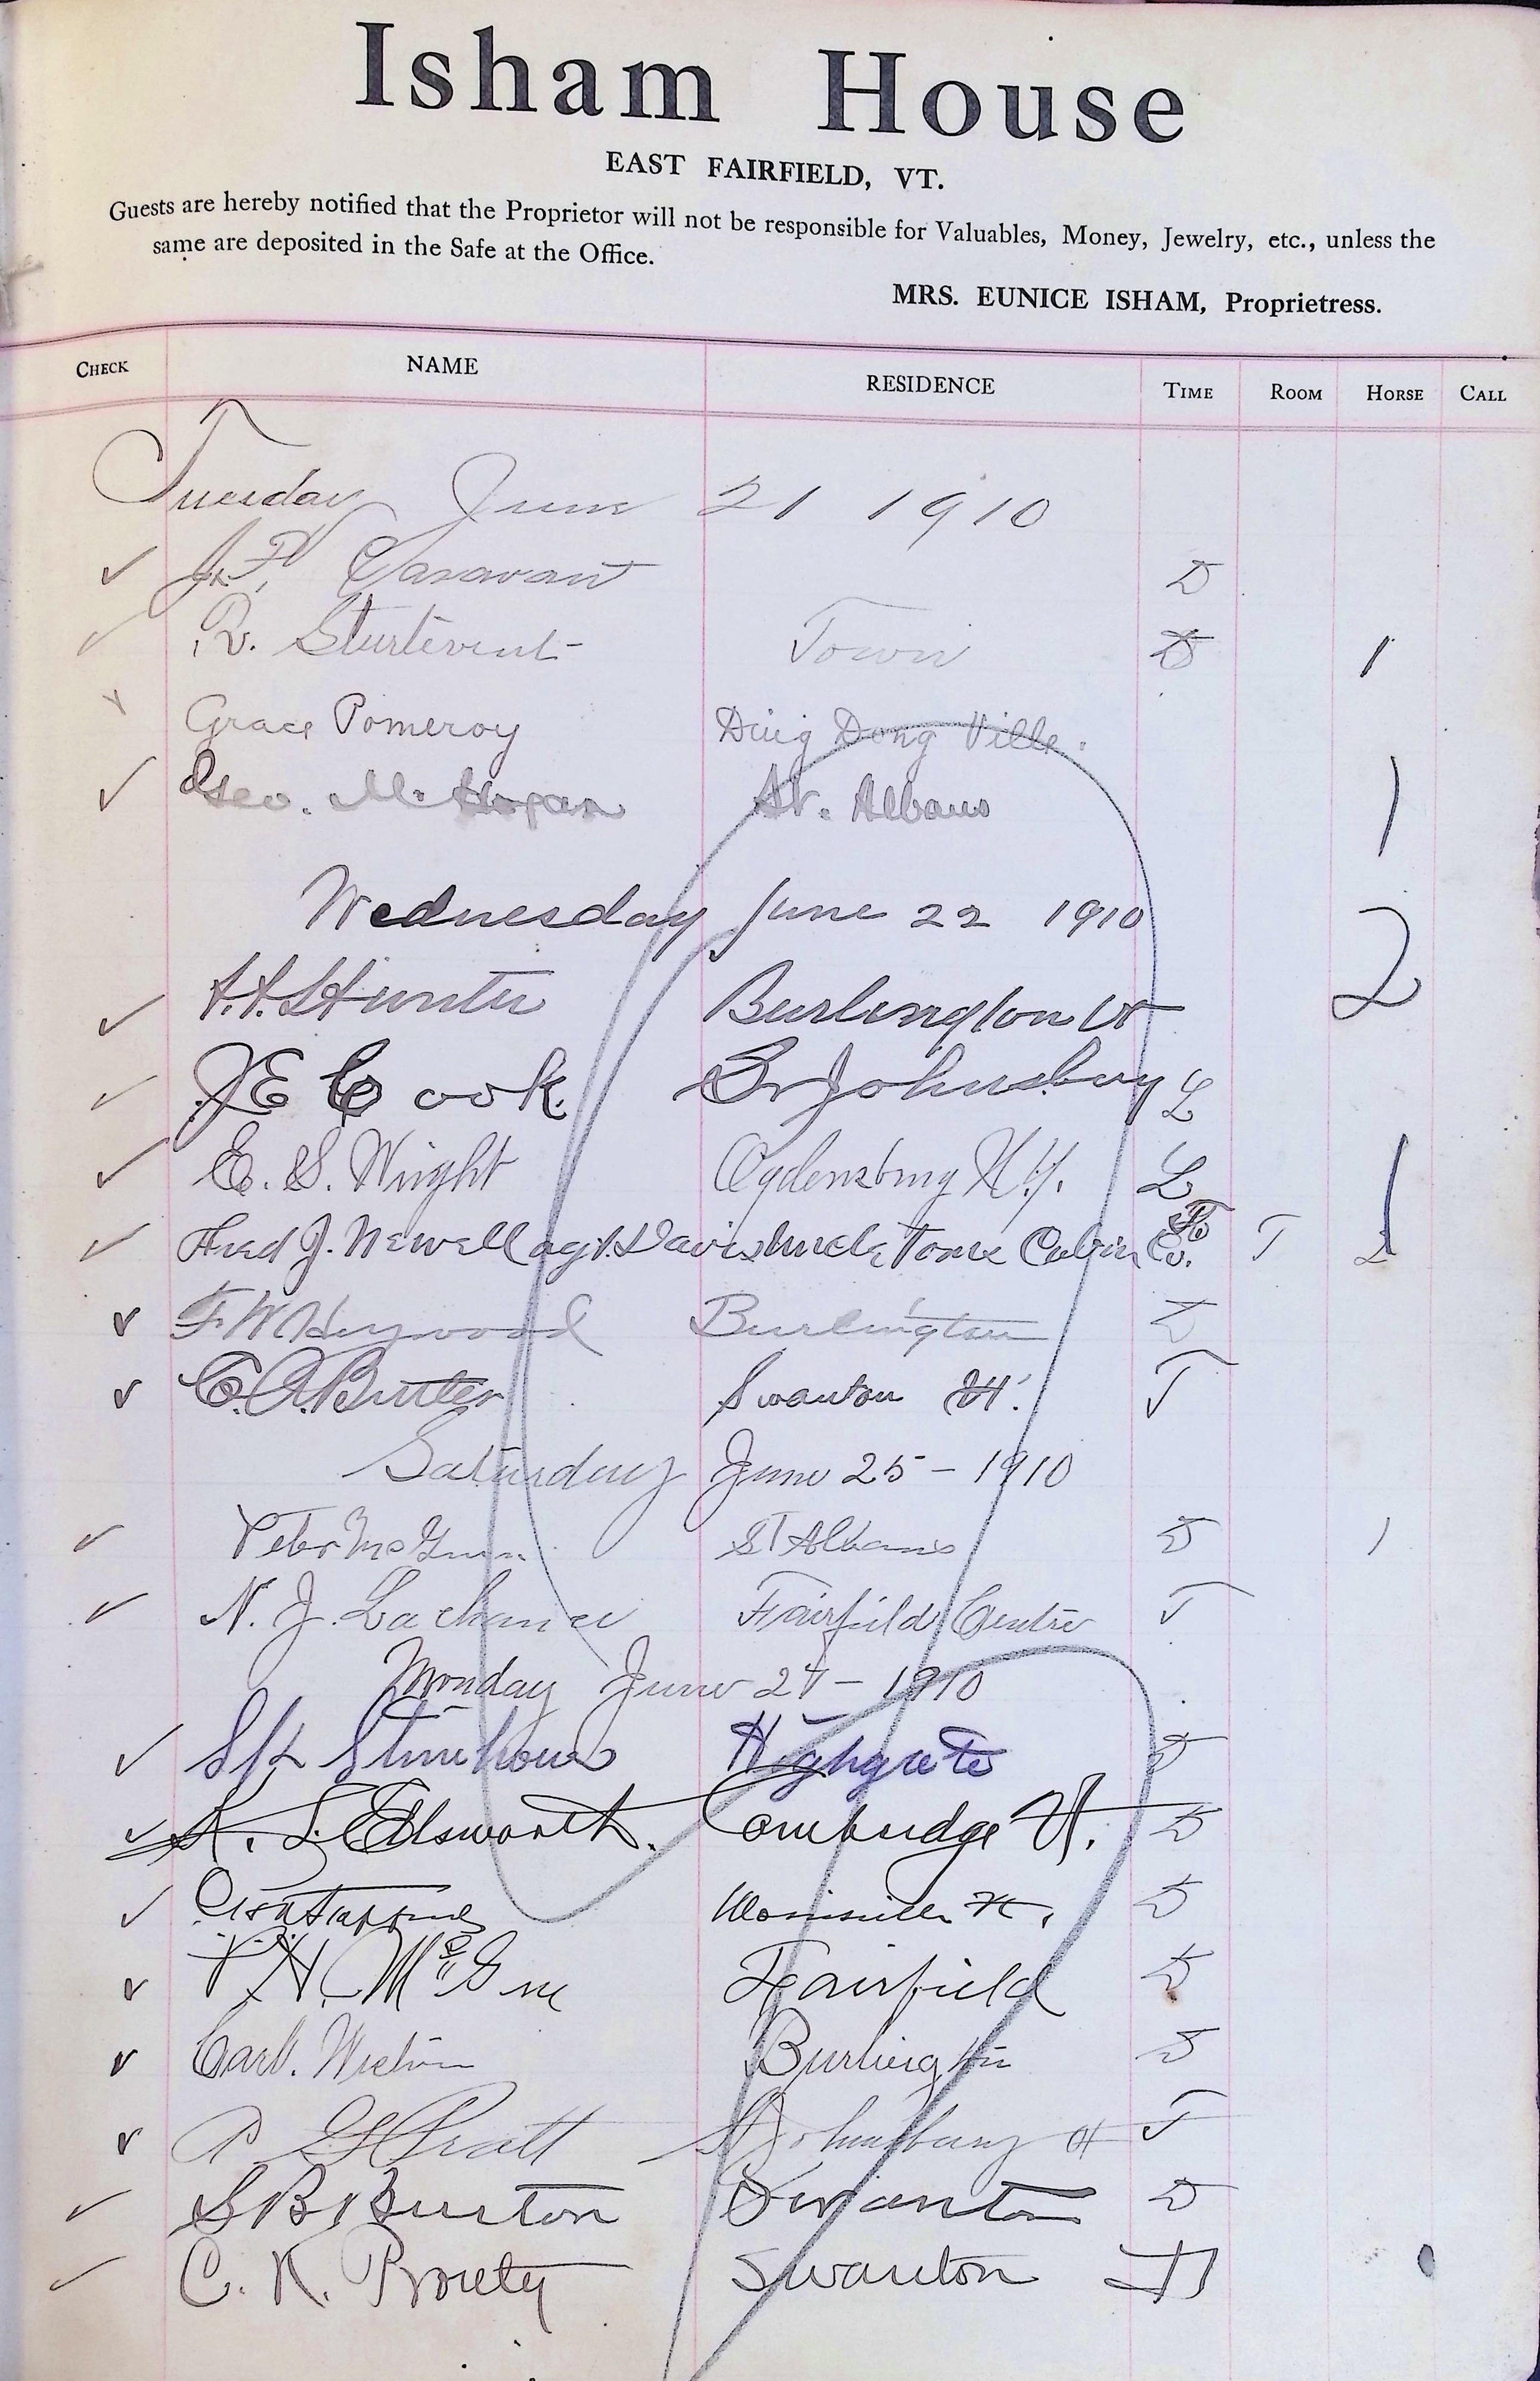 Isham House
EAST FAIRFIELD, VT.
Guests are hereby notified that the Proprietor will not be responsible for Valuables, Money, Jewelry, etc., unless the
same are deposited in the Safe at the Office.
MRS. EUNICE ISHAM, Proprietress.
CHECK NAME RESIDENCE TIME ROOM HORSE CALL
Tuesday June 21 1910
✓ J. F. Casavant D
✓ R. Sturtevent Town 1
✓ Grace Pomeroy Ding Dong Ville.
✓ Geo. M. Hogan St. Albans 1
Wednesday June 22 1910
✓ Hunter Burlington Vt 2
✓ J E Cook. St Johnsbury L
✓ E. S. Wright Ogdensburg N.Y. L 1
✓ Fred J. Newell agt. Davis Uncle Toms Cabin Co. T
✓ F W Heywood Burlington
✓ C. A. Butler Swanton Vt. T
Saturday June 25 - 1910
✓ Peter McGinn St Albans D 1
✓ N. J. Lachance Fairfield Centre T
Monday June 27 - 1910
✓ Stinehour Highgate D
✓ K. S. Ellsworth. Cambridge Vt. D
✓ D
✓ P. H. Mc Fairfield D
✓ Carl. Burlington D
✓ Pratt St Johnsbury Vt T
✓ S B Burton Swanton D
✓ C. K. Prouty Swanton